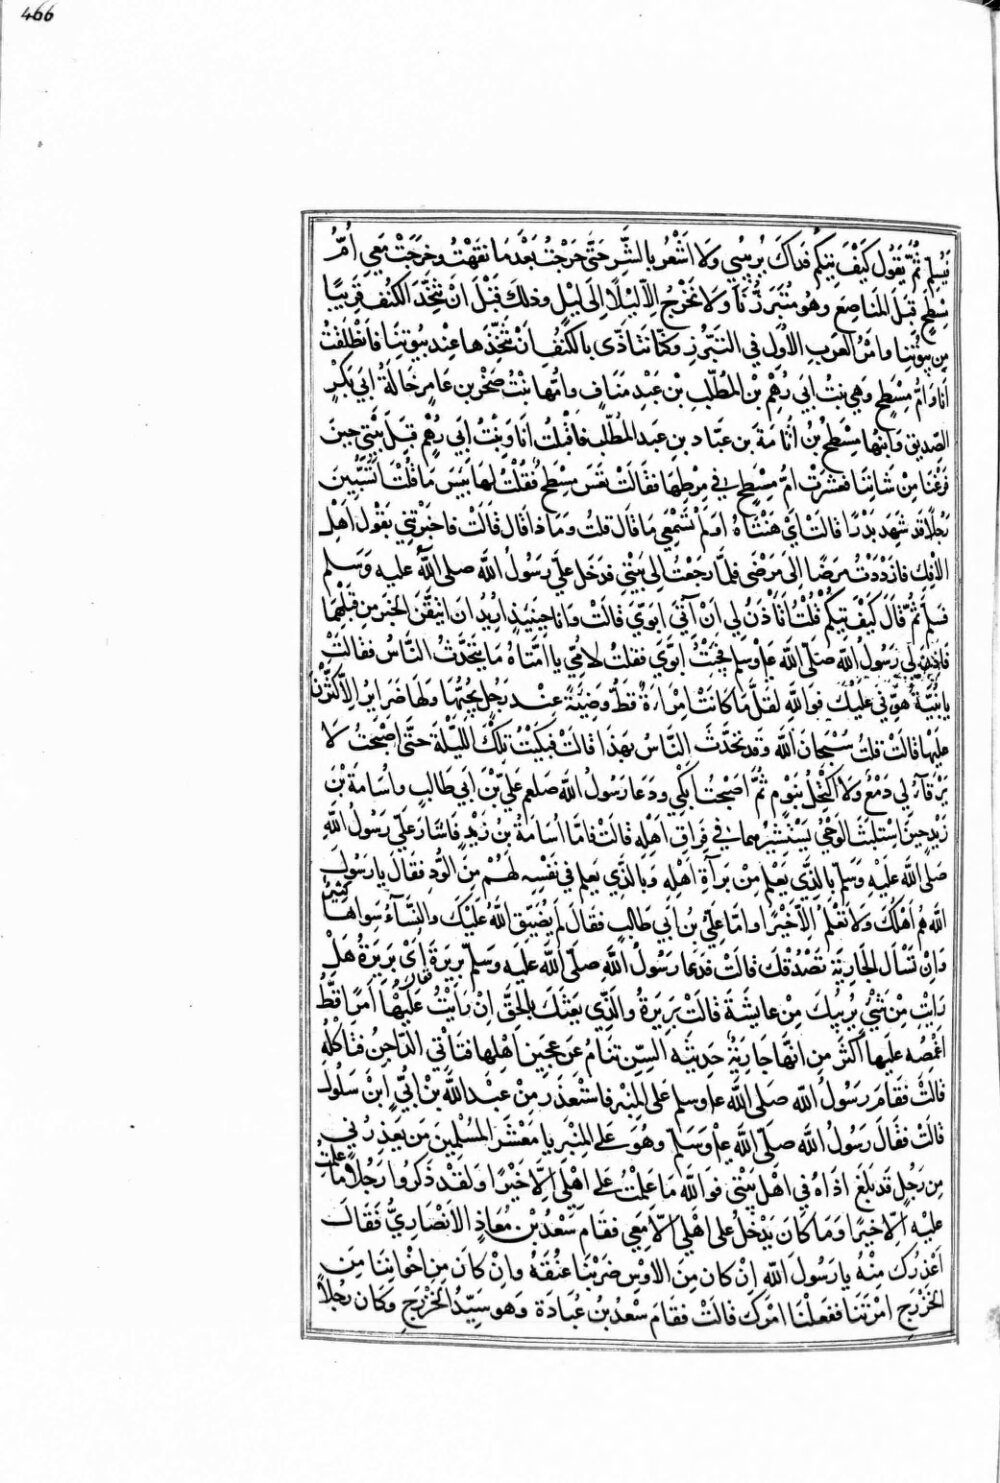 466
فيسلم ثم يقول كيف تيكم فداك يريبني ولا اشعر بالشر حتى خرجت بعد ما نقهت وخرجت معي ام
مسطح قبل المناصع وهو متبرزنا ولا نخرج الا ليلا الى ليل وذلك قبل ان نتخذ الكنف قريبا
من بيوتنا وامر العرب الاول في التبرز وكنا نتاذى بالكنف ان نتخذها عند بيوتنا فانطلقت
انا وام مسطح وهي بنت ابي رهم بن المطلب بن عبد مناف وامها بنت صخر بن عامر خالة ابي بكر
الصديق وابنها مسطح بن اثاثة بن عباد بن عبد المطلب فاقبلت انا وبنت ابي رهم قبل بيتي حين
فرغنا من شاننا فعثرت ام مسطح في مرطها فقالت تعس مسطح فقلت لها بيس ما قلت اتسبين
رجلا قد شهد بدرا قالت اي هنتاه اولم تسمعي ما قال قلت وماذا قال قالت فاخبرتني بقول اهل
الافك فازددت مرضا الى مرضي فلما رجعت الى بيتي فدخل علي رسول الله صلى الله عليه وسلم
فسلم ثم قال كيف تيكم قلت اتاذن لي ان آتي ابوي قالت وانا حينيذ اريد ان اتيقن الخبر من قبلهما
فاذن لي رسول الله صلى الله ع‍ وسلم فجئت ابوي فقلت لامي يا امتاه ما يتحدث الناس فقالت
يا بنية هوني عليك فوالله لقل ما كانت امراة قط وضيئة عند رجل يحبها ولها ضراير الا كثرن
عليها قالت قلت سبحان الله وقد تحدث الناس بهذا قالت فبكيت تلك الليلة حتى اصبحت لا
يرقآء لي دمع ولا اكتحل بنوم ثم اصبحت ابكي ودعا رسول الله صلعم علي بن ابي طالب واسامة بن
زيد حين استلبث الوحي يستشيرهما في فراق اهله قالت فاما اسامة بن زيد فاشار على رسول الله
صلى الله عليه وسلم بالذي يعلم من برآة اهله وبالذي يعلم في نفسه لهم من الود فقال يا رسول
الله هم اهلك ولا نعلم الا خيرا واما علي بن ابي طالب فقال لم يضيق الله عليك والنسآء سواها كثير
وان تسال الجارية تصدقك قالت فدعا رسول الله صلى الله عليه وسلم بريرة فقال اي بريرة هل
رايت من شيء يريبك من عايشة قالت بريرة والذي بعثك بالحق ان رايت عليها امرا قط
اغمصه عليها اكثر من انها جارية حديثه السن تنام عن عجين اهلها فتاتي الداجن فتاكله
قالت فقام رسول الله صلى الله ع‍ وسلم على المنبر فاستعذر من عبد الله بن ابي ابن سلول
قالت فقال رسول الله صلى الله ع‍ وسلم وهو على المنبر يا معشر المسلمين من يعذرني
من رجل قد بلغ اذاه في اهل بيتي فوالله ما علمت على اهلي الا خيرا ولقد ذكروا رجلا ما علمت
عليه الا خيرا وما كان يدخل على اهلي الا معي فقام سعد بن معاذ الانصاري فقال
اعذرك منه يا رسول الله ان كان من الاوس ضربنا عنقه وان كان من اخواننا من
الخزرج امرتنا ففعلنا امرك قالت فقام سعد بن عبادة وهو سيد الخزرج وكان رجلا